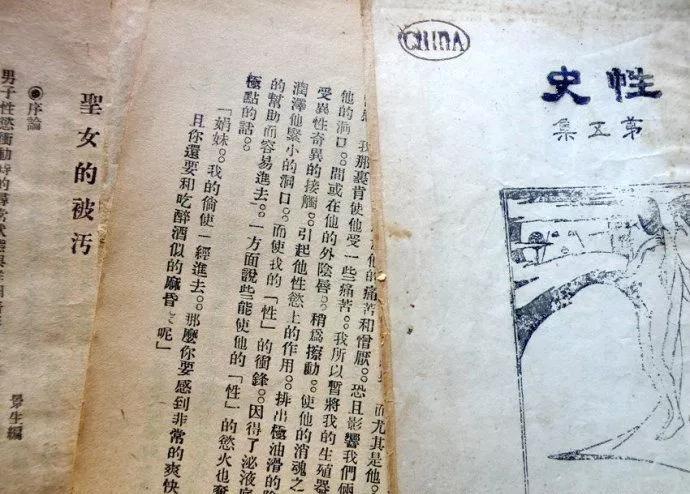 CHINA
性史
第五集
而尤其是他。
他的痛苦和憎厭。恐且影響我們倆
我那裏肯使他受一些痛苦。我所以暫將我的生殖器
他的洞口。間或在他的外陰唇。稍爲擦動。使他的消魂之
受異性奇異的接觸。引起他性慾上的作用。排出極油滑的陰
潤澤他緊小的洞口。而使我的「性」的衝鋒。因得了泌液底
的幫助而容易進去。一方面說些能使他的「性」的慾火也奮
極點的話。
「娟妹。我的倘使一經進去。那麼你要感到非常的爽快
且你還要和吃醉酒似的麻昏呢」
聖女的被汚
景生編
◉序論
男子性慾衝動時的尋常狀態與